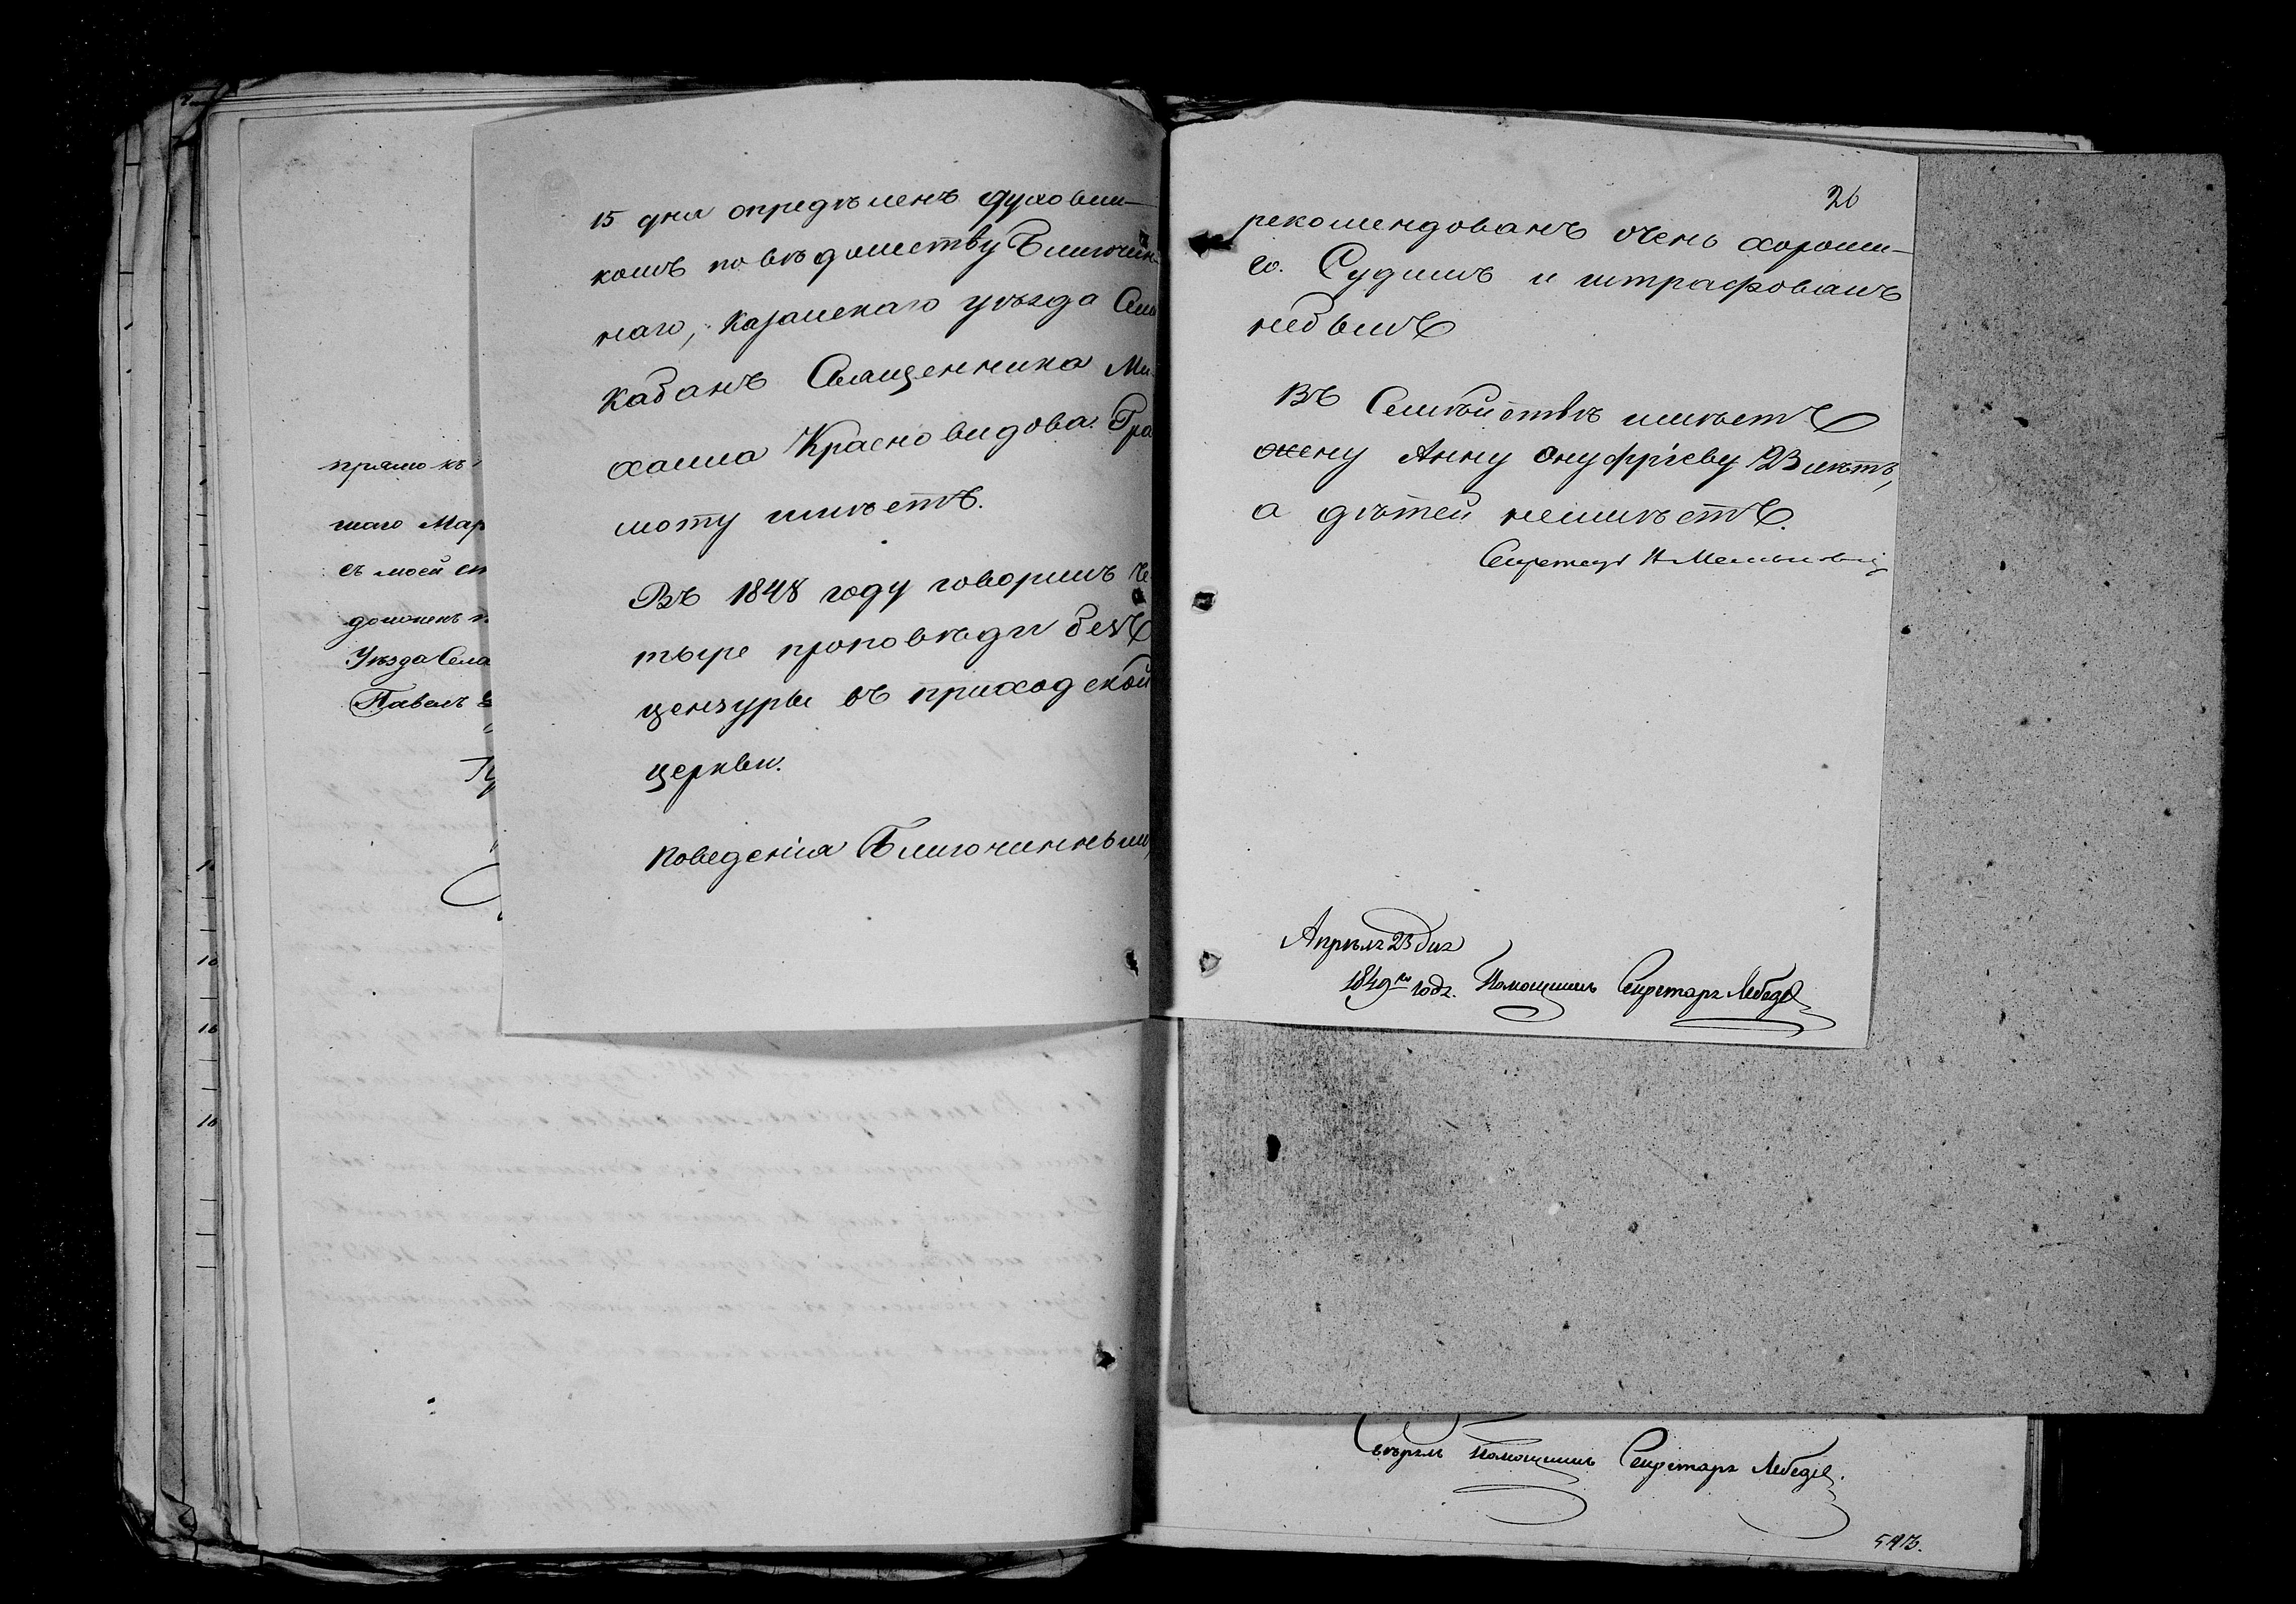 прямо къ
шаго Мар
съ моей сп
долженъ п
Уѣзда Села
Павелъ
15 дня опредѣленъ духовни-
комъ по вѣдомству Благочин-
наго, Казанскаго уѣзда Села
Кабанъ Священника Ми-
хаила Красновидова. Гра
моту имѣетъ.
Въ 1848 году говорилъ че-
тыре проповѣди безъ
цензуры въ приходской
церкви.
Поведенія Благочиннымъ
26
рекомендованъ очень хороша-
го. Судимъ и штрафованъ
небылъ
Въ Семѣйствѣ имѣетъ
жену Анну Онуфріеву 23 лѣтъ,
а дѣтей неимѣетъ.
Секретарь
Апрѣля 23 дня
1849го года. Помощникъ Секретаря Лебедев
Свѣрялъ Помощникъ Секретаря Лебедев.